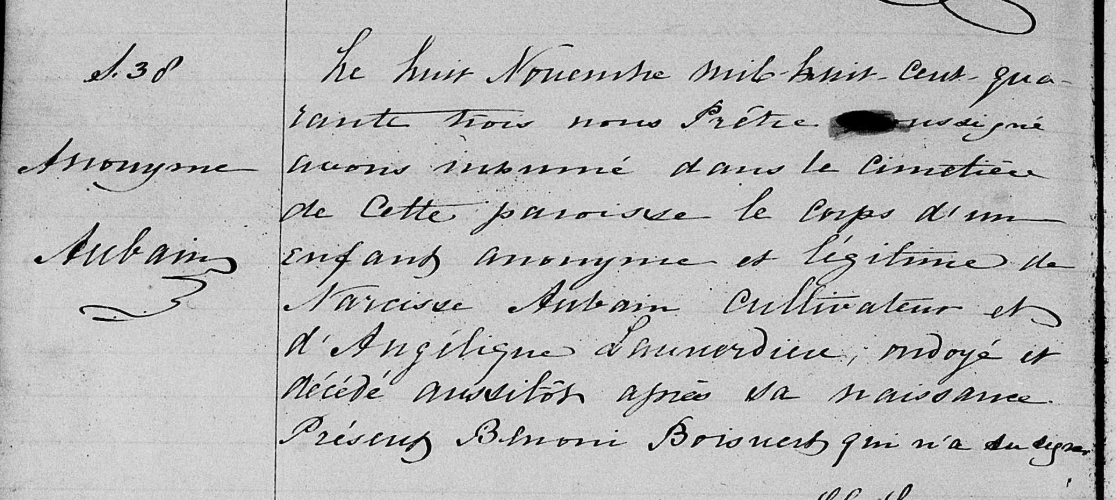 S. 38
Anonyme
Aubain
Le huit Novembre mil-huit-cent-qua-
rante trois nous Prêtre soussigné
avons inhumé dans le cimetière
de cette paroisse le corps d'un
enfant anonyme et légitime de
Narcisse Aubain cultivateur et
d'Angélique ; ondoyé et
décédé aussitôt après sa naissance
Présent Bénoni Boisvert qui n'a su signer